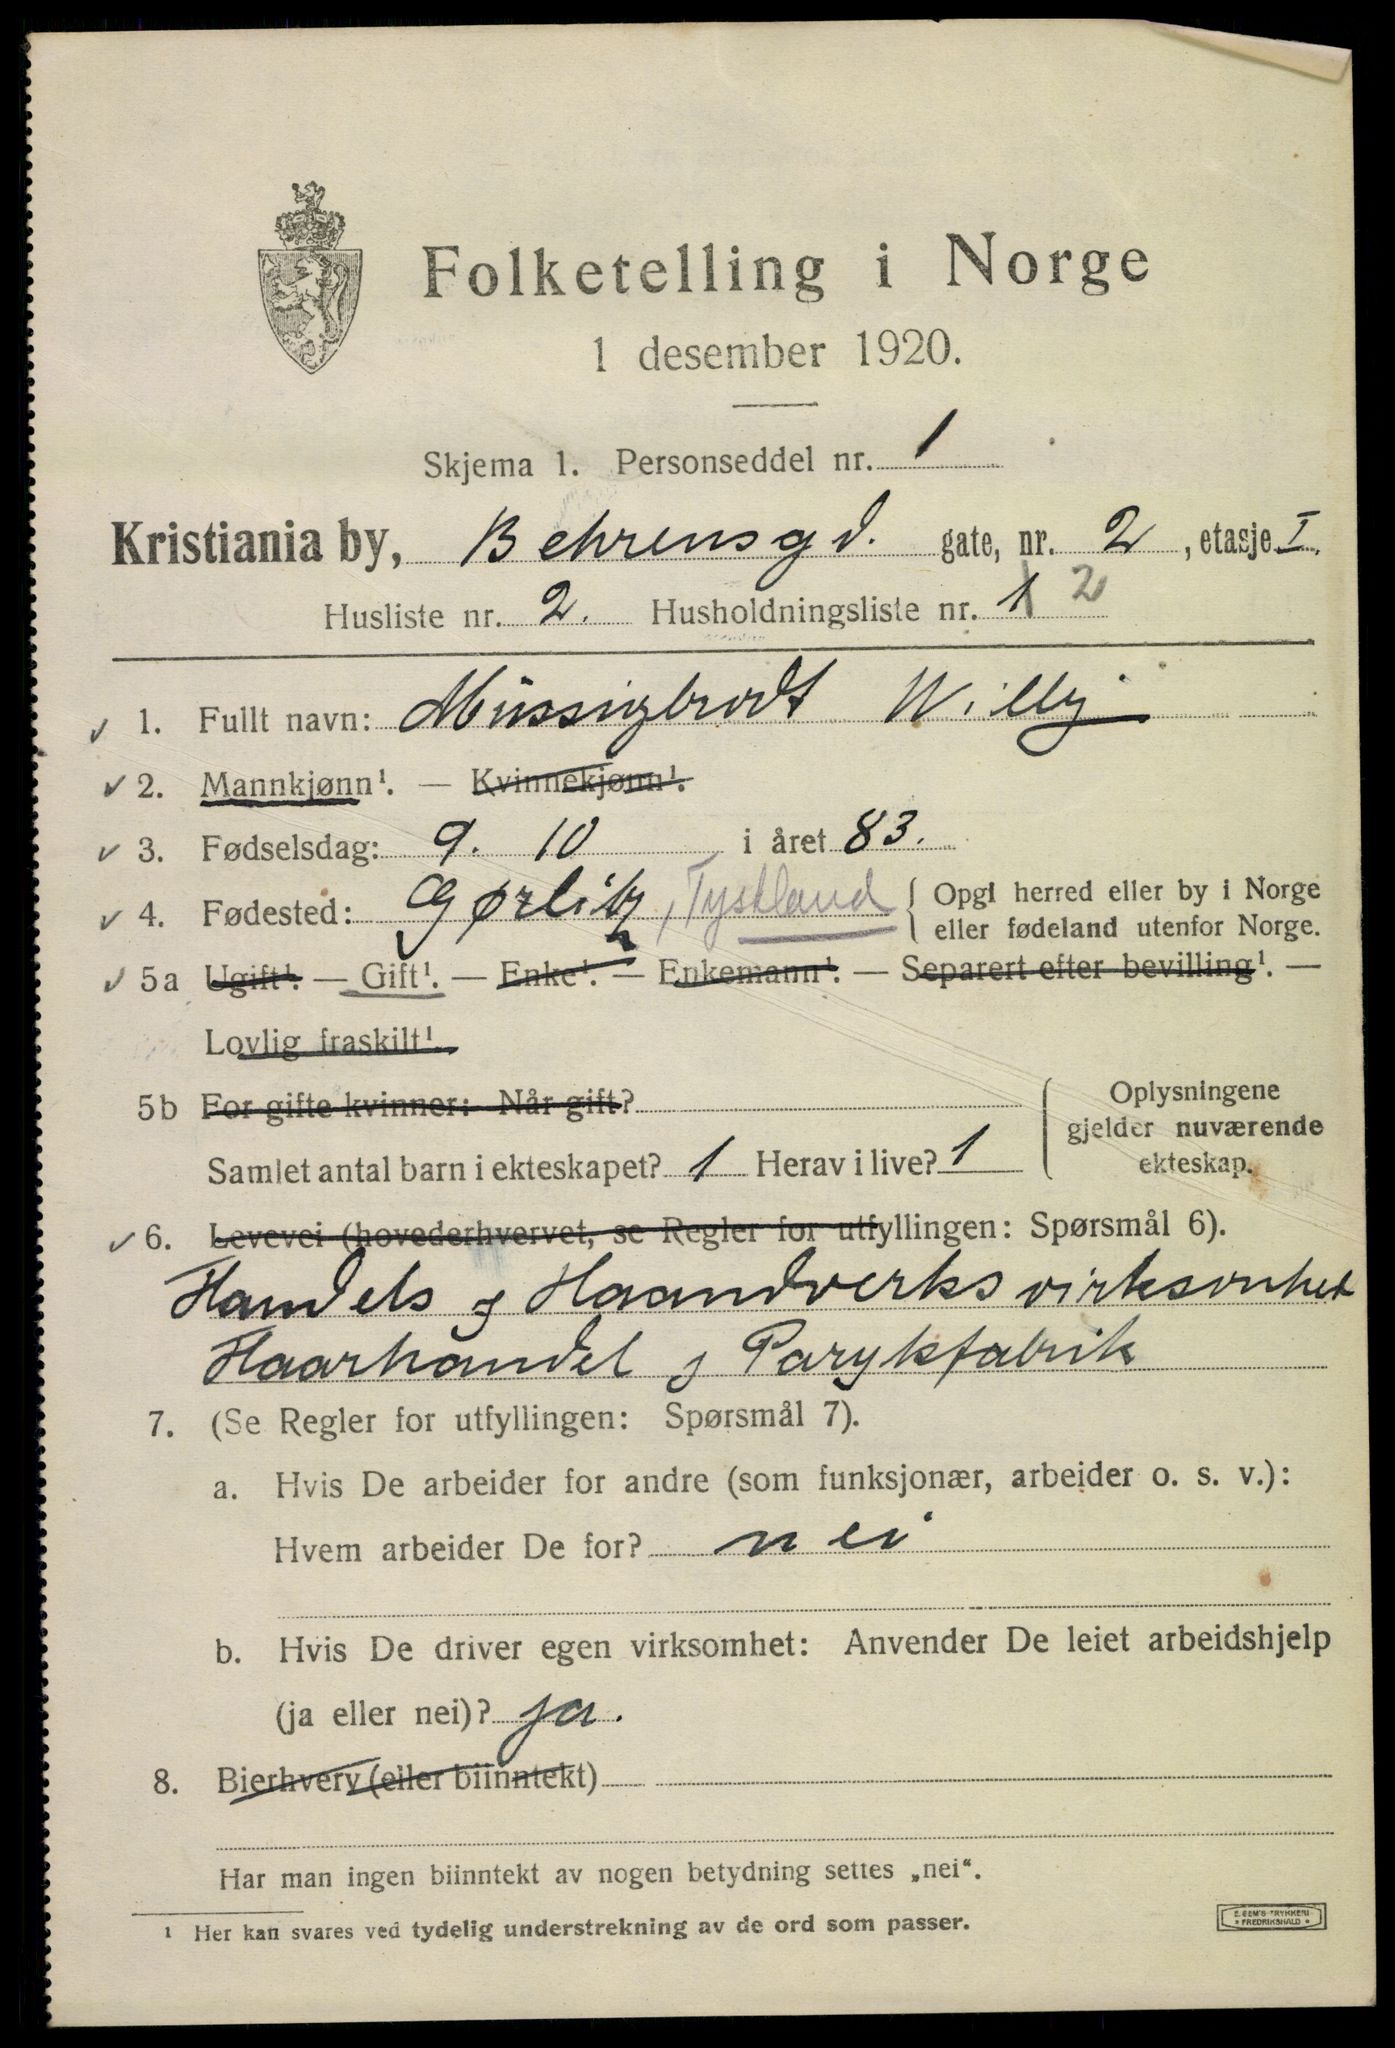 Folketelling i Norge
1 desember 1920.
Skjema 1. Personseddel nr. 1
Kristiania by, Behrensgd. gate, nr. 2, etasje I.
Husliste nr. 2. Husholdningsliste nr. 1 2
1. Fullt navn: Müssigbrodt Willy
2. Mannkjønn¹. — Kvinnekjønn¹.
3. Fødselsdag: 9. 10 i året 83.
4. Fødested: Gørlitz, Tyskland { Opgi herred eller by i Norge
eller fødeland utenfor Norge.
5a Ugift¹. — Gift¹. — Enke¹. — Enkemann¹. — Separert efter bevilling¹. —
Lovlig fraskilt¹.
5b For gifte kvinner: Når gift?
Samlet antal barn i ekteskapet? 1 Herav i live? 1
Oplysningene
gjelder nuværende
ekteskap.
6. Levevei (hovederhvervet, se Regler for utfyllingen: Spørsmål 6).
Handels og Haandverks virksomhet
Haarhandel og Parykfabrik
7. (Se Regler for utfyllingen: Spørsmål 7).
a. Hvis De arbeider for andre (som funksjonær, arbeider o. s. v.):
Hvem arbeider De for? nei
b. Hvis De driver egen virksomhet: Anvender De leiet arbeidshjelp
(ja eller nei)? ja.
8. Bierhverv (eller biinntekt)
Har man ingen biinntekt av nogen betydning settes „nei“.
¹ Her kan svares ved tydelig understrekning av de ord som passer.
E. SEM'S TRYKKERI
FREDRIKSHALD